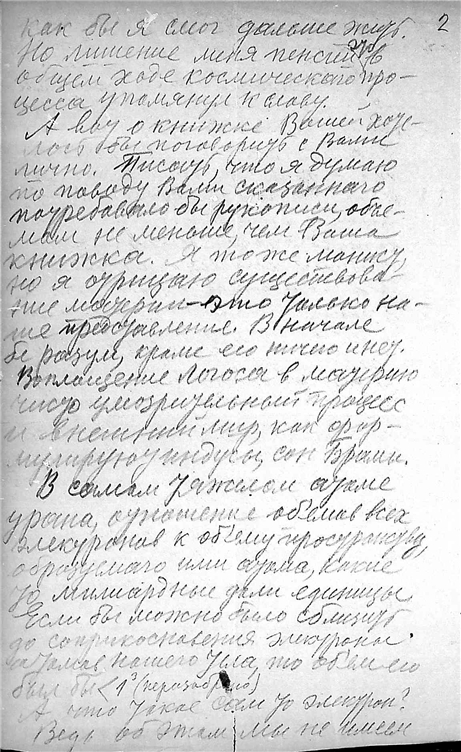 2
как бы я смог дальше жить.
Но лишение меня пенсии это в
общем ходе космического про-
цесса упомянул к слову.
А вот о книжке Вашей хоте-
лось бы поговорить с Вами
лично. Писать, что я думаю
по поводу Вами сказанного
потребовало бы рукописи, объе-
мом не меньше, чем Ваша
книжка. Я тоже монист,
но я отрицаю существова-
ние материи – это только на-
ше представление. В начале
бе разум, кроме его ничего и нет.
Воплощение Логоса в материю
чисто умозрительный процесс
и внешний мир, как фор-
мулируют индусы, сон Брамы.
В самом тяжелом атоме
урана, отношение объемов всех
электронов к объему пространства,
образуемаго ими атома, какие
то миллиардные доли единицы
Если бы можно было сблизить
до соприкосновения электроны
атомов нашего тела, то объем его
был бы < 1³ (неразобрано)
А что такое сам то электрон?
Ведь об этом мы не имеем